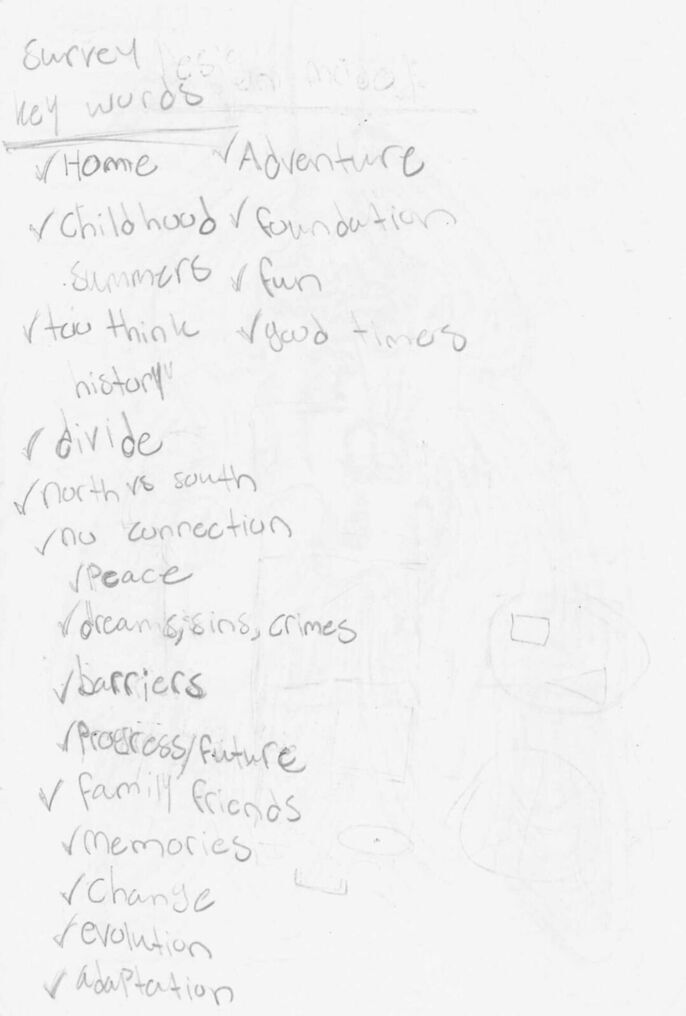 Survey
key words
✓Home ✓Adventure
✓Childhood ✓foundation
summers ✓fun
✓too think ✓good times
history"
✓divide
✓north vs south
✓no connection
✓Peace
✓dreams, sins, crimes
✓barriers
✓Progress/future
✓family friends
✓Memories
✓Change
✓evolution
✓adaptation